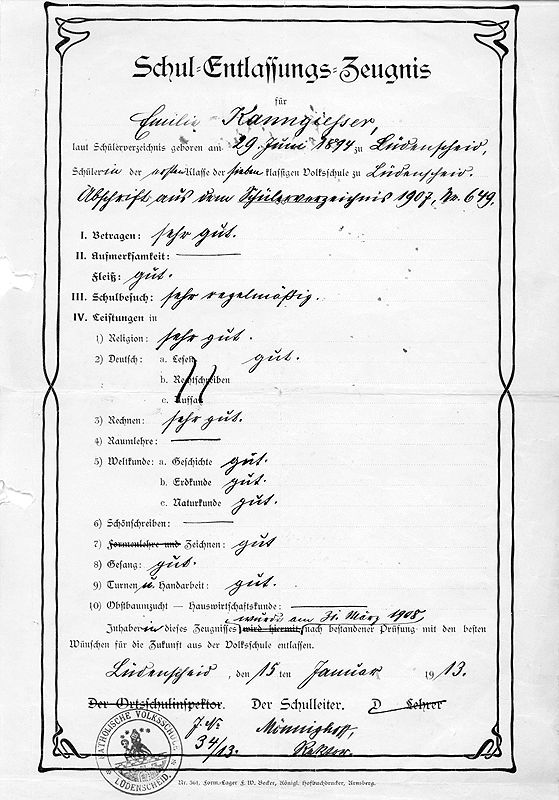 Schul-Entlassungs-Zeugnis
für
Emilie Kanngiesser,
laut Schülerverzeichnis geboren am 29. Juni 1894 zu Lüdenscheid,
Schülerin der ersten Klasse der sieben klassigen Volksschule zu Lüdenscheid.
Abschrift aus dem Schülerverzeichnis 1907, No. 649.
I. Betragen: sehr gut.
II. Aufmerksamkeit:
Fleiß: gut.
III. Schulbesuch: sehr regelmäßig.
IV. Leistungen in
1) Religion: sehr gut.
2) Deutsch: a. Lesen gut.
b. Rechtschreiben
c. Aufsatz
3) Rechnen: sehr gut.
4) Raumlehre:
5) Weltkunde: a. Geschichte gut.
b. Erdkunde gut.
c. Naturkunde gut.
6) Schönschreiben:
7) Formenlehre und Zeichnen: gut
8) Gesang: gut.
9) Turnen u. Handarbeit: gut.
10) Obstbaumzucht — Hauswirtschaftskunde:
wurde am 31. März 1908
Inhaberin dieses Zeugnisses wird hiermit nach bestandener Prüfung mit den besten
Wünschen für die Zukunft aus der Volksschule entlassen.
Lüdenscheid, den 15ten Januar 1913.
Der Ortsschulinspektor. Der Schulleiter. D Lehrer
J. No Mönnighoff,
34/13. Rektor.
KATHOLISCHE VOLKSSCHULE
LÜDENSCHEID.
Nr. 361. Form.-Lager F. W. Becker, Königl. Hofbuchdrucker, Arnsberg.